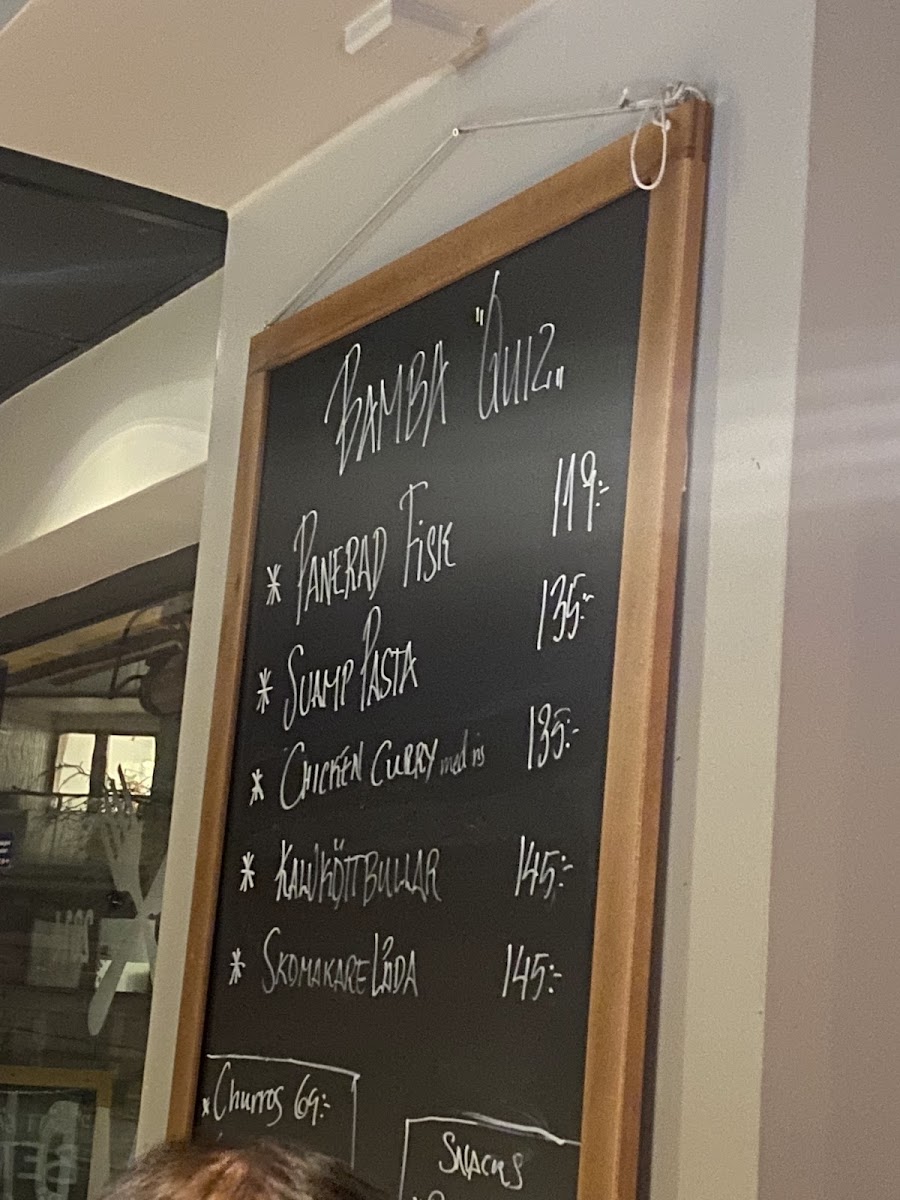 BAMBA "QUIZ"
* PANERAD FISK 119:-
* SVAMP PASTA 135:-
* CHICKEN CURRY med ris 135:-
* KALVKÖTTBULLAR 145:-
* SKOMAKARELÅDA 145:-
* Churros 69:-
SNACKS